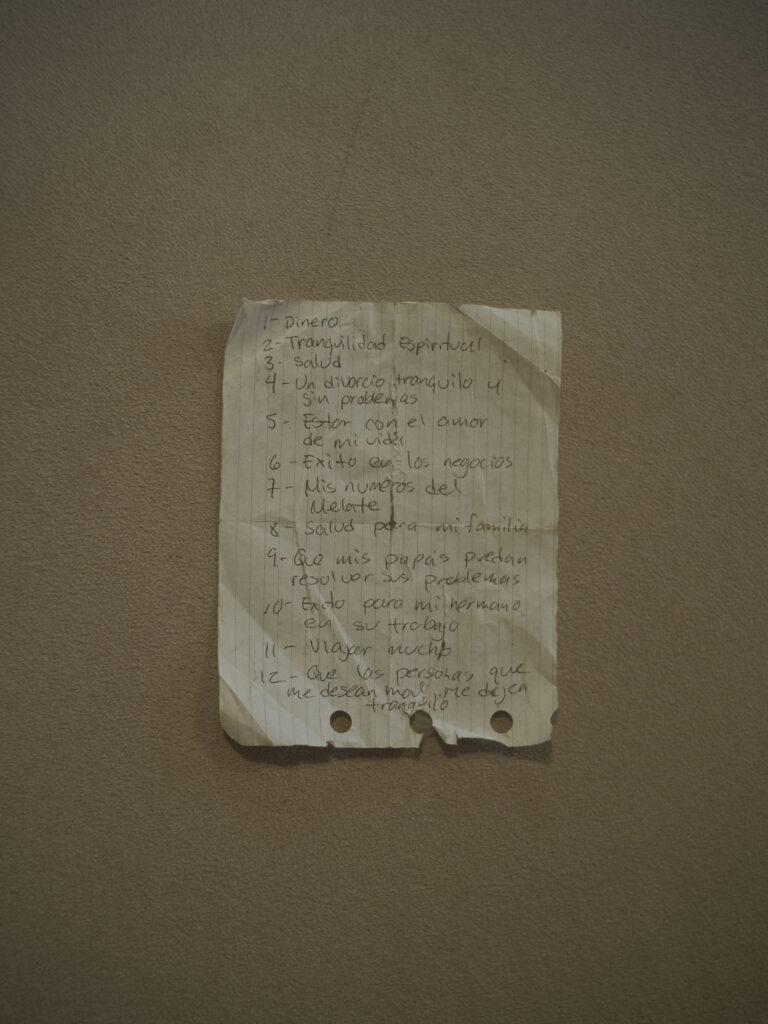 1- Dinero
2- Tranquilidad Espiritual
3- Salud
4- Un divorcio tranquilo y
sin problemas
5- Estar con el amor
de mi vida
6- Exito en los negocios
7- Mis numeros del
Melate
8- Salud para mi familia
9- Que mis papás puedan
resolver sus problemas
10- Exito para mi hermano
en su trabajo
11- Viajar mucho
12- Que las personas que
me desean mal, me dejen
tranquilo